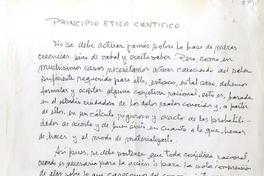 PRINCIPIO ETICO CIENTIFICO
No se debe actuar jamás sobre la base de meras
creencias, sino de cabal y exacto saber. Pero, como en
muchísimos casos necesitamos actuar careciendo del saber
suficiente requerido para ello, entonces, en tal caso, debemos
formular y aceptar alguna conjetura racional, esto es, fundada en
el estudio cuidadoso de los datos reales conocidos y, a partir
de ellos, en el cálculo riguroso y exacto de las probabili-
dades de acierto y de error en cuanto a lo que, hemos
de hacer y el modo de materializarlo.
Así pues, se debe sostener que toda conjetura racional,
cuando es necesaria para la acción o para la
de ellos sobre lo que